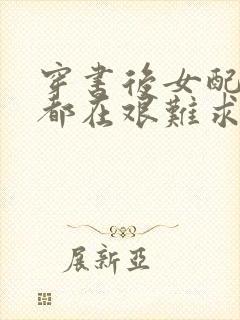 穿書後女配
都在艰難求
展新亞